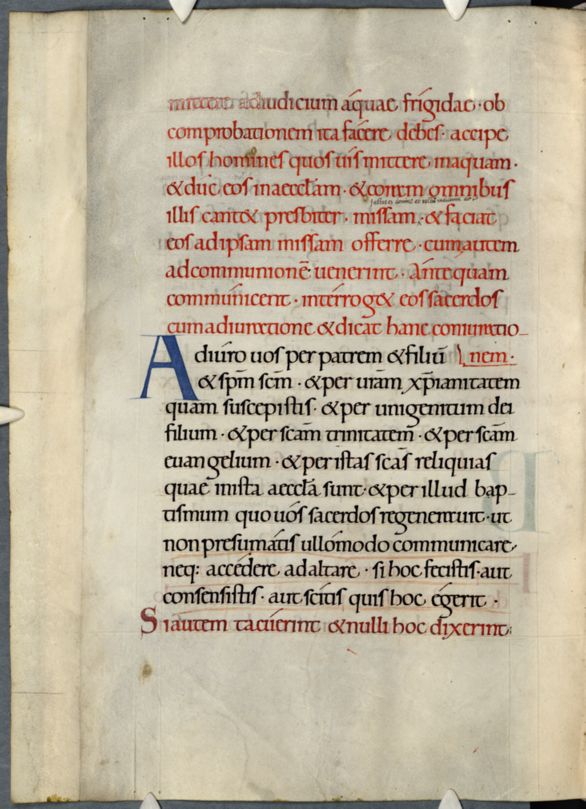 mittere adiudicium aquae frigidae · ob
comprobationem ita facere debes · accipe
illos homines quos uis mittere inaquam ·
& duc eos inaeccl̄am · & coram omnibus
illis cant& presbiter · missam · & faciat
eos adipsam missam offerre · cumautem
adcommunionē uenerint · Antequam
communicent · interrog& eos sacerdos
cum adiuratione & dicat hanc coniuratio
nem ·
Adiuro uos per patrem & filiū
& sp̄m sc̄m · & per ur̄am xp̄ianitatem
quam suscepistis · & per unigenitum dei
filium · & per sc̄am trinitatem · & per sc̄am
euangelium · & per istas sc̄as reliquias
quae inista aeccl̄a sunt · & per illud bap-
tismum quo uos sacerdos regenerauit · ut
non presumatis ullomodo communicare ·
neq: accedere ad altare · si hoc fecistis · aut
consensistis · aut scitis quis hoc egerit ·
Si autem tacuerint & nulli hoc dixerint ·